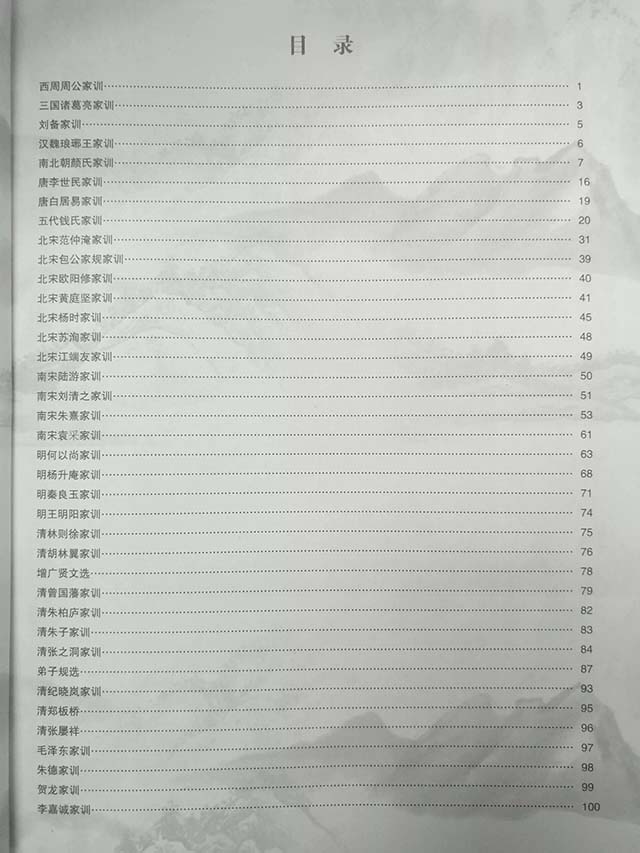 目 录
西周周公家训 1
三国诸葛亮家训 3
刘备家训 5
汉魏琅琊王家训 6
南北朝颜氏家训 7
唐李世民家训 16
唐白居易家训 19
五代钱氏家训 20
北宋范仲淹家训 31
北宋包公家规家训 39
北宋欧阳修家训 40
北宋黄庭坚家训 41
北宋杨时家训 45
北宋苏洵家训 48
北宋江端友家训 49
南宋陆游家训 50
南宋刘清之家训 51
南宋朱熹家训 53
南宋袁采家训 61
明何以尚家训 63
明杨升庵家训 68
明秦良玉家训 71
明王明阳家训 74
清林则徐家训 75
清胡林翼家训 76
增广贤文选 78
清曾国藩家训 79
清朱柏庐家训 82
清朱子家训 83
清张之洞家训 84
弟子规选 87
清纪晓岚家训 93
清郑板桥 95
清张履祥 96
毛泽东家训 97
朱德家训 98
贺龙家训 99
李嘉诚家训 100